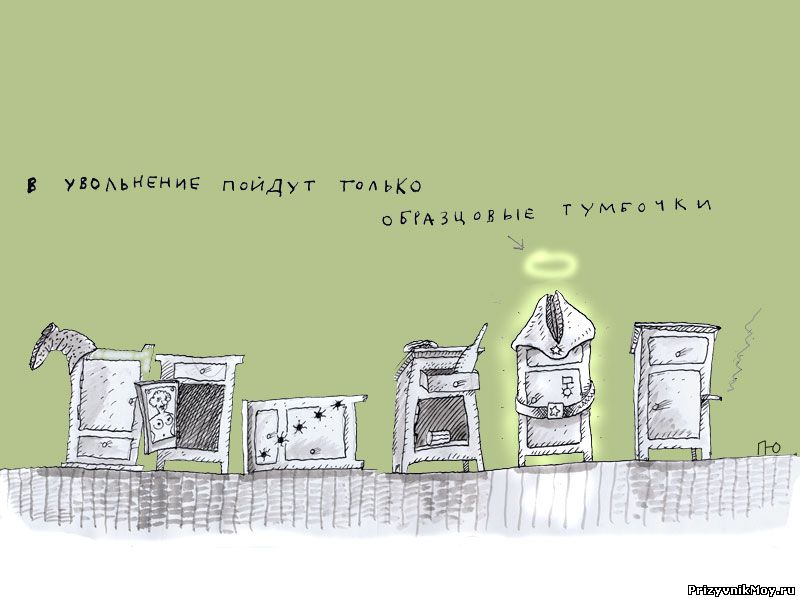 В УВОЛЬНЕНИЕ ПОЙДУТ ТОЛЬКО
ОБРАЗЦОВЫЕ ТУМБОЧКИ
ПЮ
PrizyvnikMoy.ru